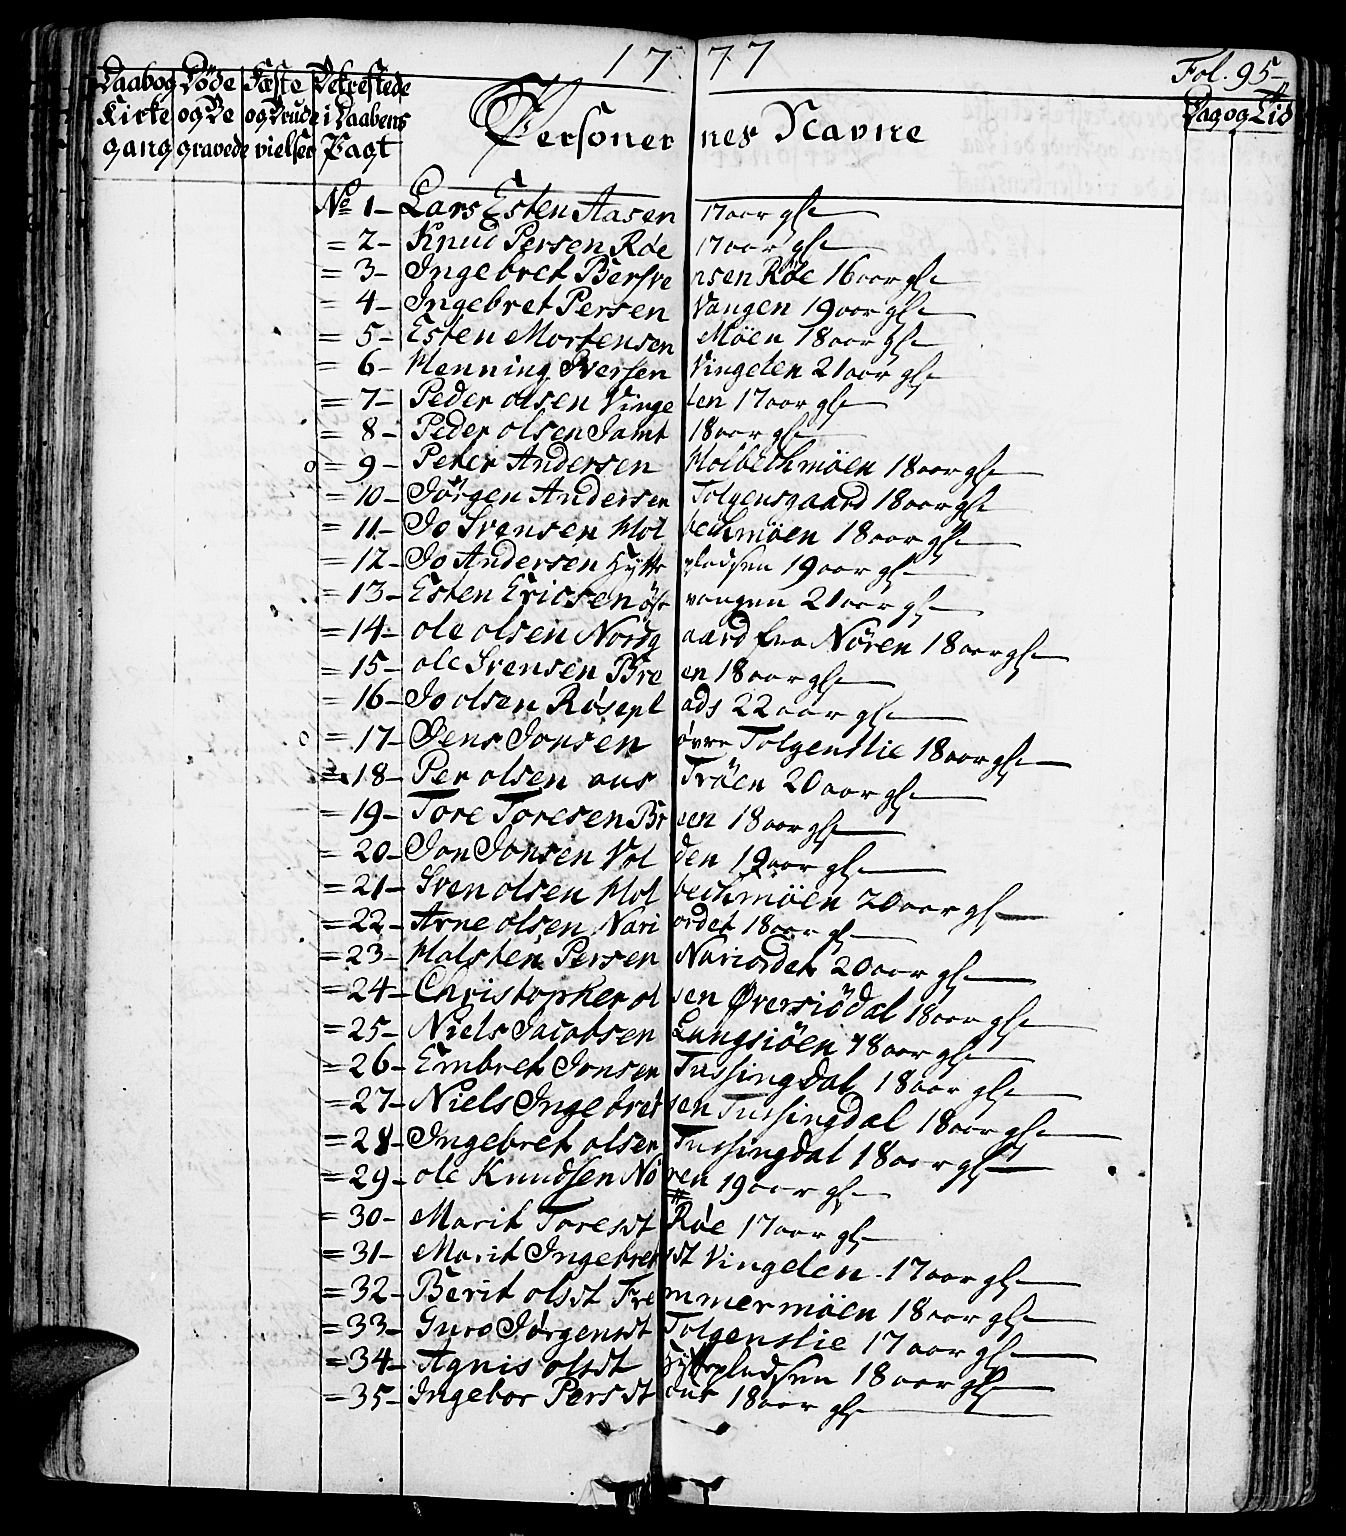 1777
Fol. 95-
Daabog Døde Fæste Bekræftede
Kirke og Be og Brude i Daabens
gang gravede vielser Pagt
Personernes Navne
Dag og Tid
No 1- Lars Esten Aasen 17 aar gl.
= 2- Knud Persen Røe 17 aar gl.
= 3- Ingebret Bersvensen Røe 16 aar gl.
= 4- Ingebret Persen Vangen 19 aar gl.
= 5- Esten Mortensen Moen 18 aar gl.
= 6- Henning Iversen Vingelen 21 aar gl.
= 7- Peder olsen Vingelen 17 aar gl.
= 8- Peder olsen Jamt 18 aar gl.
= 9- Peter Andersen Holbechmöen 18 aar gl.
= 10- Jörgen Andersen Tolgensgaard 18 aar gl.
= 11- Jo Svensen Holbechmöen 18 aar gl.
= 12- Jo Andersen Hyttepladsen 19 aar gl.
= 13- Esten Ericsen østvangen 21 aar gl.
= 14- ole olsen Nordgaard fra Nören 18 aar gl.
= 15- ole Svensen Breen 18 aar gl.
= 16- Jo olsen Røseplads 22 aar gl.
= 17- Jens Jonsen øvre Tolgenslie 18 aar gl.
= 18- Per olsen aus Tröen 20 aar gl.
= 19- Tore Toresen Breen 18 aar gl.
= 20- Jon Jonsen Volden 19 aar gl.
= 21- Sven olsen Holbechmöen 20 aar gl.
= 22- Arne olsen Nariordet 18 aar gl.
= 23- Halsten Persen Nariordet 20 aar gl.
= 24- Christopher olsen Øversiödal 18 aar gl.
= 25- Niels Jacobsen Langsiöen 18 aar gl.
= 26- Embret Jonsen Tussingdal 18 aar gl.
= 27- Niels Ingebretsen Tussingdal 18 aar gl.
= 28- Ingebret olsen Tussingdal 18 aar gl.
= 29- ole Knudsen Nören 19 aar gl.
= 30- Marit Toresdt Røe 17 aar gl.
= 31- Marit Ingebretsdt Vingelen 17 aar gl.
= 32- Berit olsdt Fremmermöen 18 aar gl.
= 33- Guro Jørgensdt Tolgenslie 17 aar gl.
= 34- Agnis olsdt Hyttepladsen 18 aar gl.
= 35- Ingebor Persdt aus 18 aar gl.